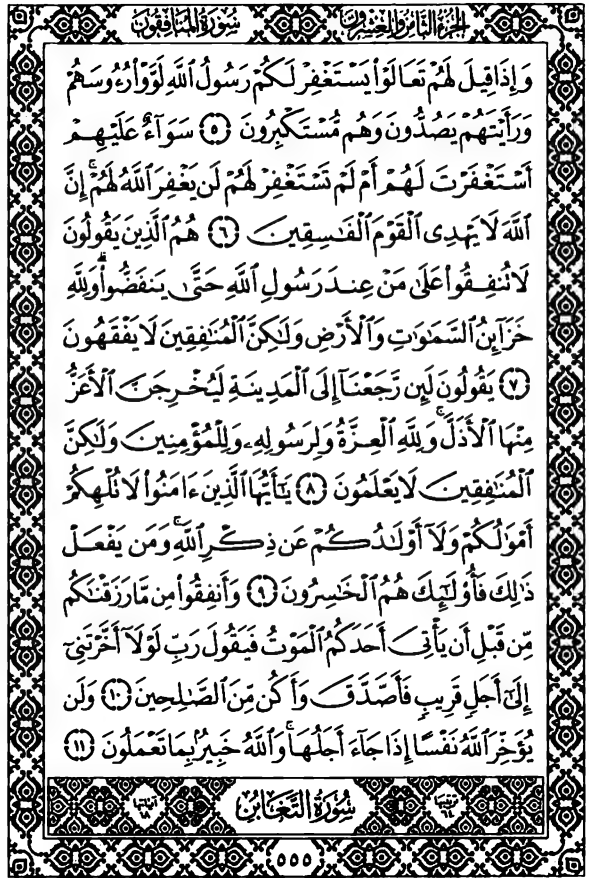 الجزء الثامن والعشرون
سورة المنافقون
وَإِذَا قِيلَ لَهُمْ تَعَالَوْا۟ يَسْتَغْفِرْ لَكُمْ رَسُولُ ٱللَّهِ لَوَّوْا۟ رُءُوسَهُمْ
وَرَأَيْتَهُمْ يَصُدُّونَ وَهُم مُّسْتَكْبِرُونَ ٥ سَوَآءٌ عَلَيْهِمْ
أَسْتَغْفَرْتَ لَهُمْ أَمْ لَمْ تَسْتَغْفِرْ لَهُمْ لَن يَغْفِرَ ٱللَّهُ لَهُمْ ۚ إِنَّ
ٱللَّهَ لَا يَهْدِى ٱلْقَوْمَ ٱلْفَٰسِقِينَ ٦ هُمُ ٱلَّذِينَ يَقُولُونَ
لَا تُنفِقُوا۟ عَلَىٰ مَنْ عِندَ رَسُولِ ٱللَّهِ حَتَّىٰ يَنفَضُّوا۟ ۗ وَلِلَّهِ
خَزَآئِنُ ٱلسَّمَٰوَٰتِ وَٱلْأَرْضِ وَلَٰكِنَّ ٱلْمُنَٰفِقِينَ لَا يَفْقَهُونَ
٧ يَقُولُونَ لَئِن رَّجَعْنَآ إِلَى ٱلْمَدِينَةِ لَيُخْرِجَنَّ ٱلْأَعَزُّ
مِنْهَا ٱلْأَذَلَّ ۚ وَلِلَّهِ ٱلْعِزَّةُ وَلِرَسُولِهِۦ وَلِلْمُؤْمِنِينَ وَلَٰكِنَّ
ٱلْمُنَٰفِقِينَ لَا يَعْلَمُونَ ٨ يَٰٓأَيُّهَا ٱلَّذِينَ ءَامَنُوا۟ لَا تُلْهِكُمْ
أَمْوَٰلُكُمْ وَلَآ أَوْلَٰدُكُمْ عَن ذِكْرِ ٱللَّهِ ۚ وَمَن يَفْعَلْ
ذَٰلِكَ فَأُو۟لَٰٓئِكَ هُمُ ٱلْخَٰسِرُونَ ٩ وَأَنفِقُوا۟ مِن مَّا رَزَقْنَٰكُم
مِّن قَبْلِ أَن يَأْتِىَ أَحَدَكُمُ ٱلْمَوْتُ فَيَقُولَ رَبِّ لَوْلَآ أَخَّرْتَنِىٓ
إِلَىٰٓ أَجَلٍ قَرِيبٍ فَأَصَّدَّقَ وَأَكُن مِّنَ ٱلصَّٰلِحِينَ ١٠ وَلَن
يُؤَخِّرَ ٱللَّهُ نَفْسًا إِذَا جَآءَ أَجَلُهَا ۚ وَٱللَّهُ خَبِيرٌۢ بِمَا تَعْمَلُونَ ١١
ترتيبها ٦٤
سُورَةُ التَّغَابُنِ
آياتها ١٨
٥٥٥